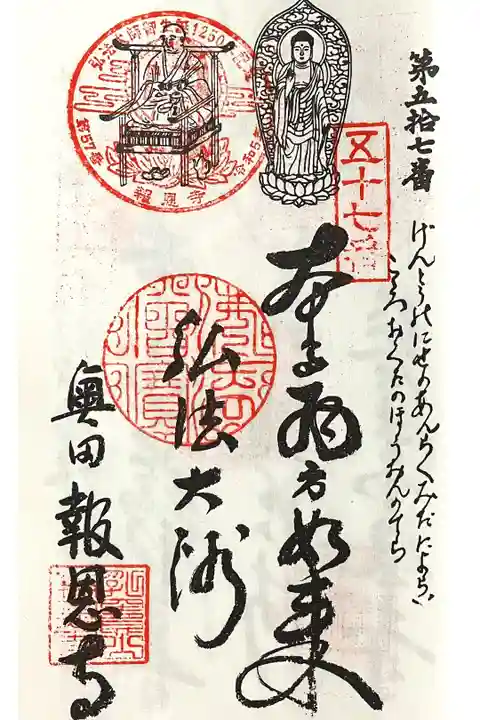 第五拾七番
げんとうのにせのあんらくみだに
こころおくたのほうおんのてら
五十七番
本尊西方如来
弘法大師
奥田 報恩寺
弘法大師御生誕1250年記念
第57番
令和5年
報恩寺